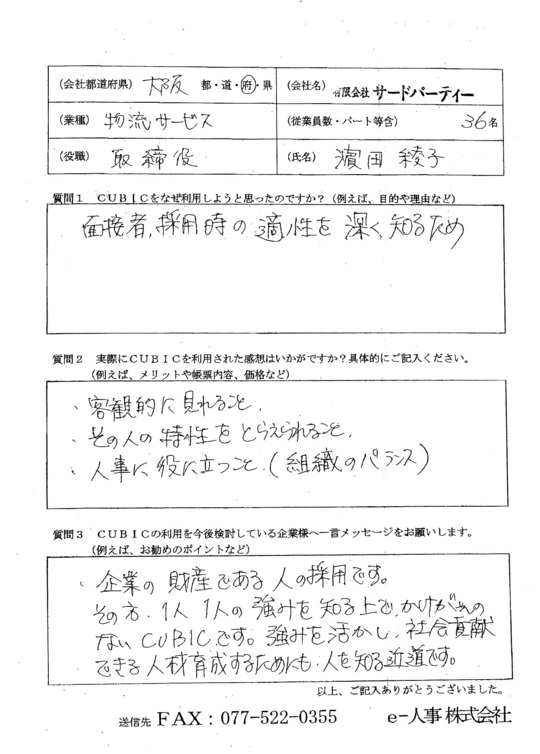 (会社都道府県) 大阪 都・道・府・県 (会社名) 有限会社 サードパーティー
(業種) 物流サービス (従業員数・パート等含) 36名
(役職) 取締役 (氏名) 濵田 綾子
質問1 CUBICをなぜ利用しようと思ったのですか?(例えば、目的や理由など)
面接者,採用時の適性を深く知るため
質問2 実際にCUBICを利用された感想はいかがですか?具体的にご記入ください。
(例えば、メリットや帳票内容、価格など)
・客観的に見れること.
・その人の特性をとらえられること.
・人事に役に立つこと.(組織のバランス)
質問3 CUBICの利用を今後検討している企業様へ一言メッセージをお願いします。
(例えば、お勧めのポイントなど)
・企業の財産である人の採用です。
その方、1人1人の強みを知る上で、かけがえの
ないCUBICです。強みを活かし、社会貢献
できる人材育成するためにも、人を知る近道です。
以上、ご記入ありがとうございました。
送信先 FAX:077-522-0355 e-人事株式会社